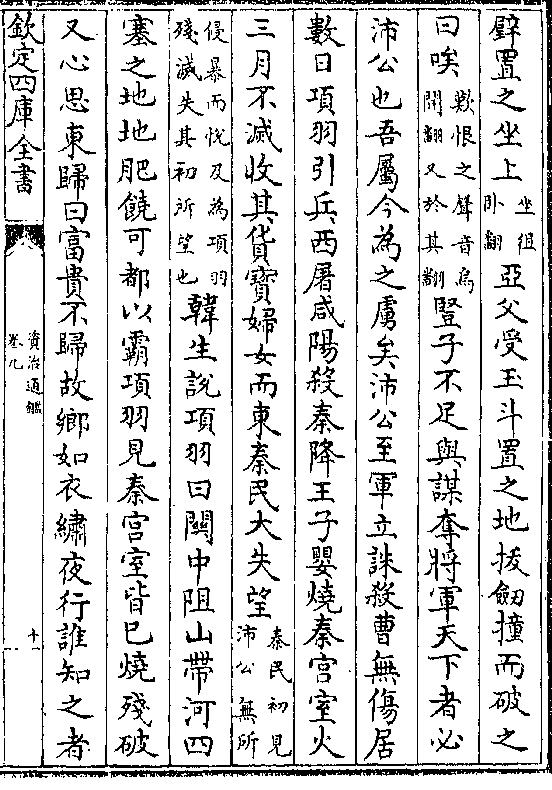 璧置之坐上坐徂卧翻亞父受玉斗置之地拔劒撞而破之
曰唉歎恨之聲音烏開翻又於其翻豎子不足與謀奪將軍天下者必
沛公也吾屬今為之虜矣沛公至軍立誅殺曹無傷居
數日項羽引兵西屠咸陽殺秦降王子嬰燒秦宫室火
三月不滅收其貨寶婦女而東秦民大失望秦民初見沛公無所
侵暴而悦及為項羽殘滅失其初所望也韓生說項羽曰關中阻山帶河四
塞之地地肥饒可都以霸項羽見秦宫室皆已燒殘破
又心思東歸曰富貴不歸故鄉如衣繡夜行誰知之者
欽定四庫全書
資治通鑑
卷九
十一